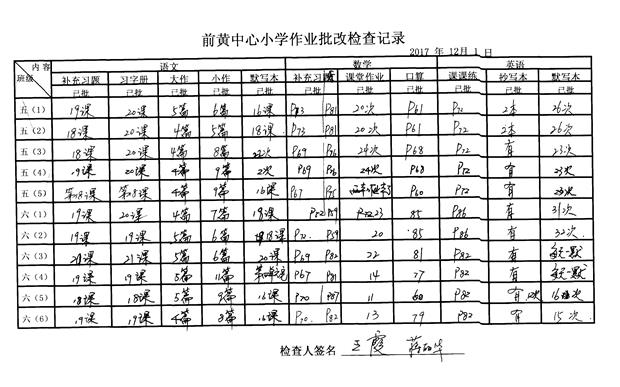 前黄中心小学作业批改检查记录
2017 年 12月 1 日
内容 语文 数学 英语
班级 补充习题 习字册 大作 小作 默写本 补充习题 课堂作业 口算 课课练 抄写本 默写本
已批 已批 已批 已批 已批 已批 已批 已批 已批 已批 已批
五（1） 19课 20课 5篇 6篇 16课 P81 20次 P61 P72 2本 26次
五（2） 18课 20课 4篇 5篇 18课 P73 P81 20次 P61 P72 2本 26次
五（3） 18课 20课 4篇 8篇 P69 P76 24次 P68 P72 有 23次
五（4） 19课 20课 4篇 9篇 2次 P69 P76 24次 P68 P72 有 23次
五（5） 第18课 第18课 4篇 9篇 16课 P67 P60 P72 有 23次
六（1） 19课 20课 4篇 7篇 18课 P52 P59 85 P86 有 31次
六（2） 19课 19课 5篇 6篇 18课 P59 20 85 P86 有 32次
六（3） 21课 21课 5篇 6篇 20课 P69 P82 22 81 P82 有 每一默
六（4） 19课 19课 5篇 11篇 P67 P81 14 77 P82 有 每一默
六（5） 18课 18课 5篇 9篇 16课 P70 P87 11 60 P82 有 16次
六（6） 19课 19课 4篇 8篇 16课 P70 P82 13 79 P82 有 15次
检查人签名 王霞